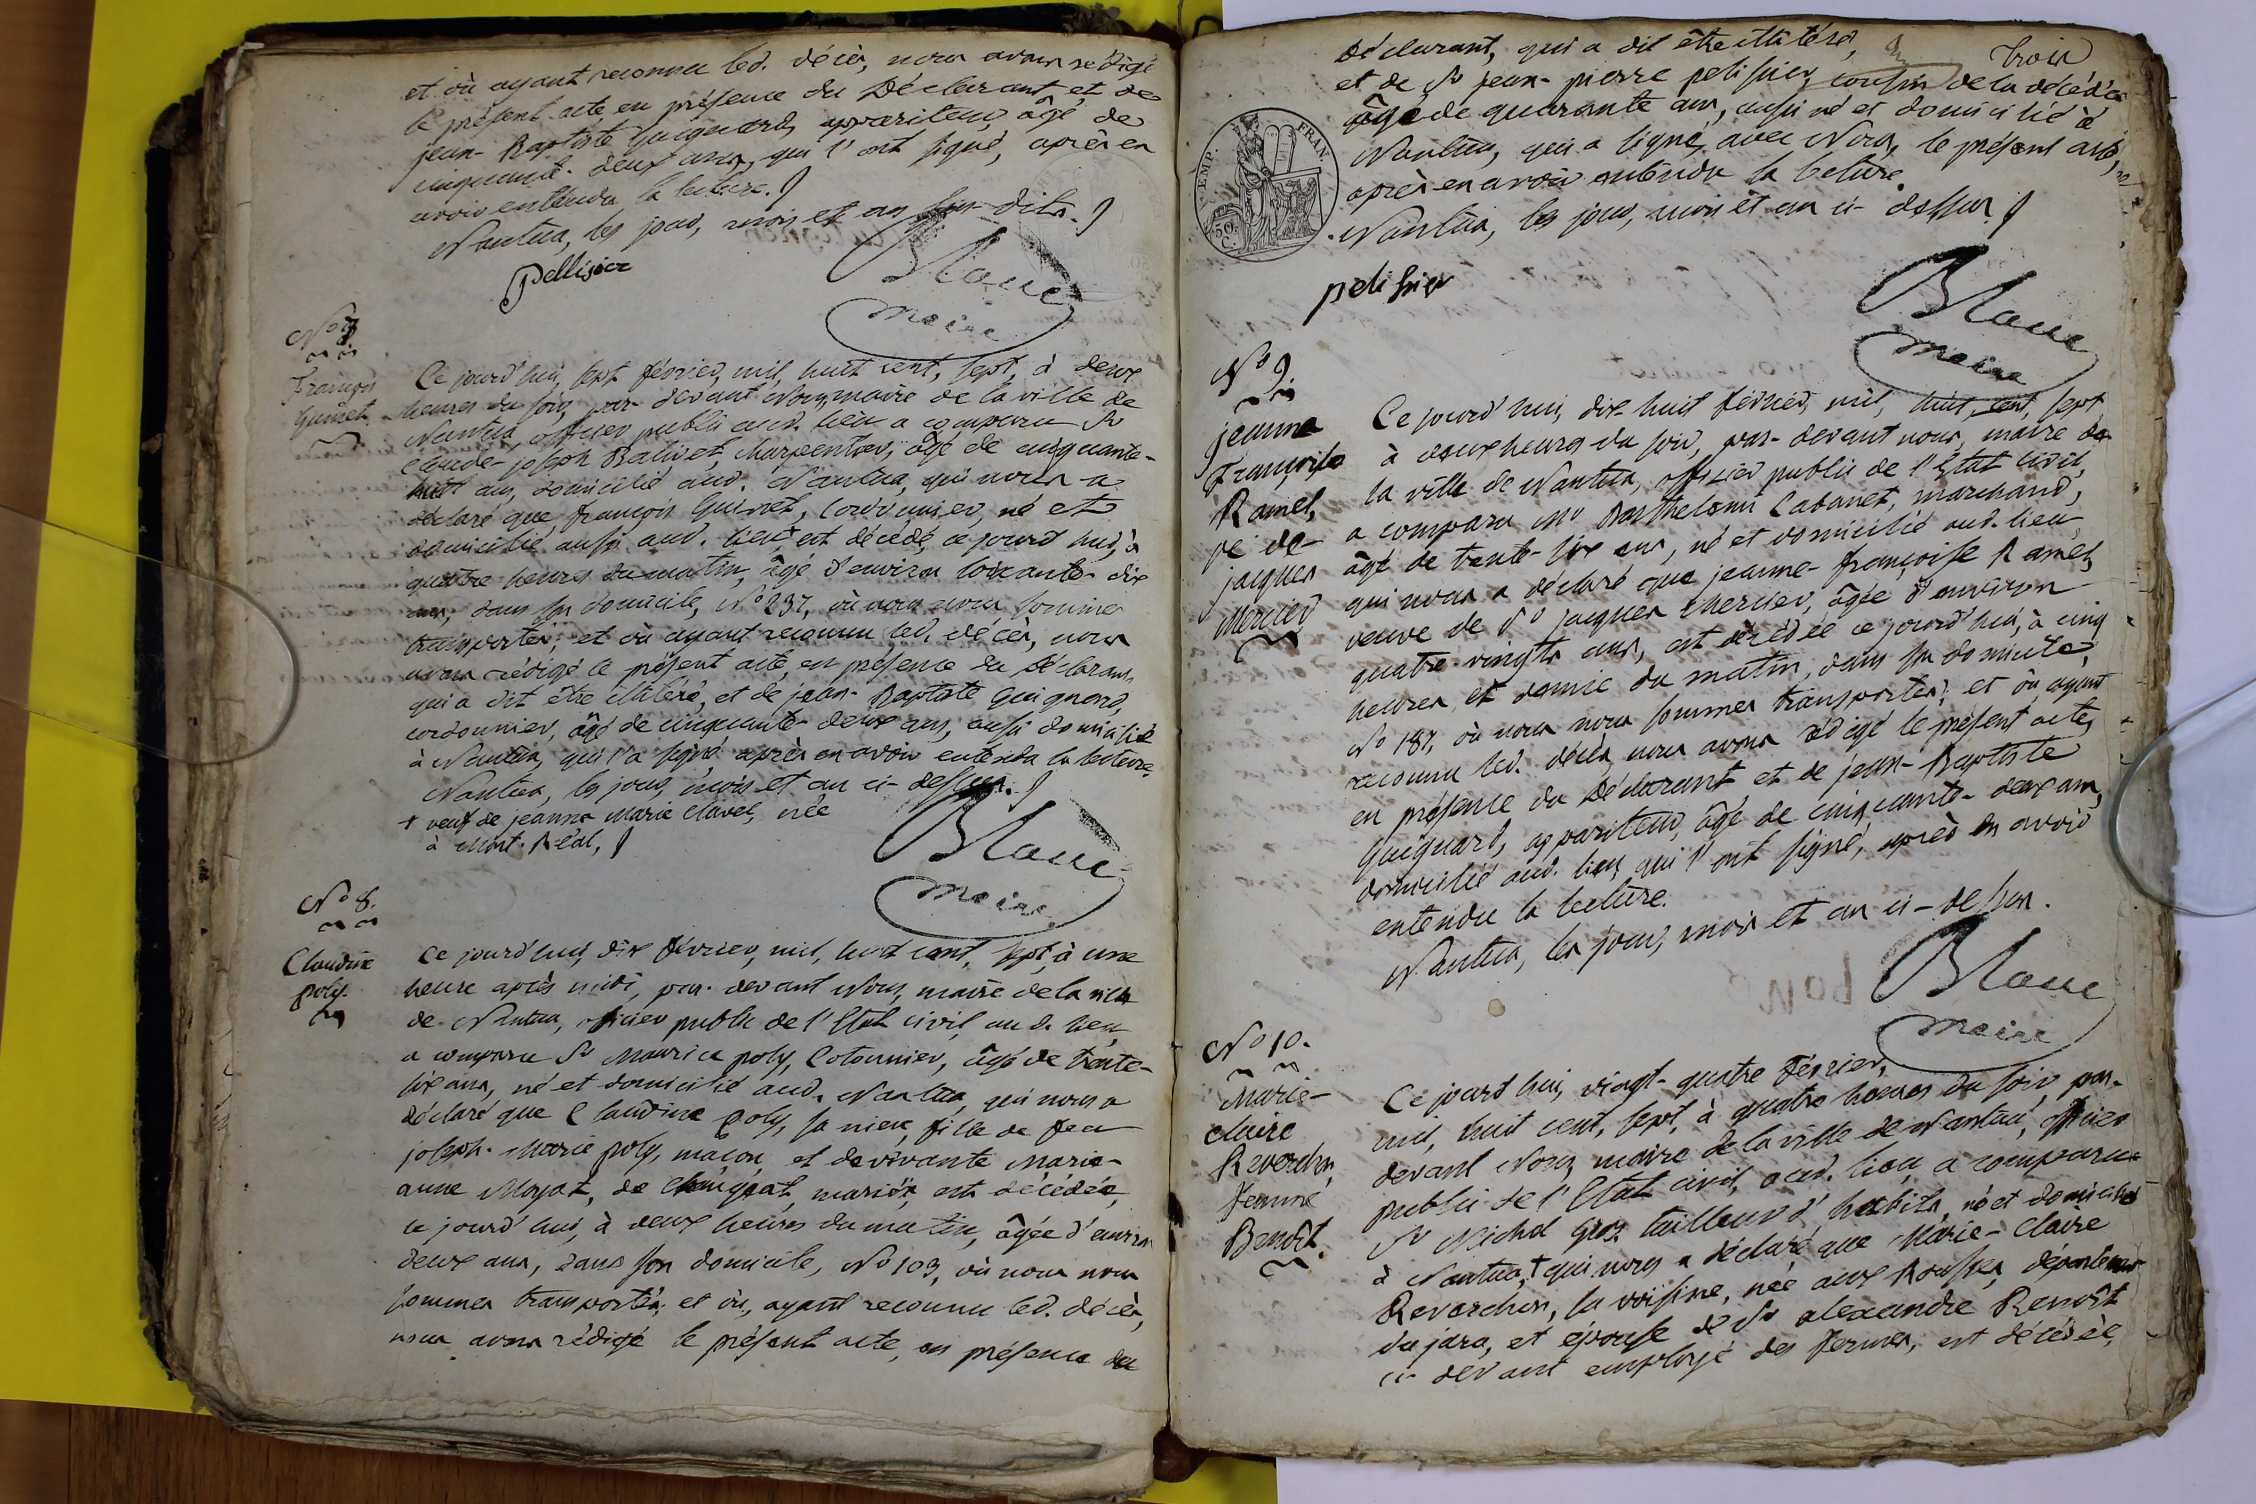 et où ayant reconnu led. décès, nous avons rédigé
le présent acte en présence du Déclarant et de
jean-Baptiste Guignard, appariteur, âgé de
cinquante-deux ans, qui l'ont signé, après en
avoir entendu la lecture.
Nantua, les jour, mois et an sus-dits.
Pellissier
Blanc
maire
N° 7
François
Guinet
Ce jourd'hui, sept février, mil, huit cent, sept, à deux
heures du soir, par-devant Nous, maire de la ville de
Nantua, officier public aud. lieu a comparu Sr
claude-joseph Balivet, charpentier, âgé de cinquante-
huit ans, domicilié aud. Nantua, qui nous a
déclaré que françois Guinet, Cordonnier, né et
domicilié aussi aud. lieu, est décédé, ce jourd'hui, à
quatre heures du matin, âgé d'environ soixante-dix
ans, dans son domicile, N° 237, où nous nous sommes
transportés; et où ayant reconnu led. décès, nous
avons rédigé le présent acte, en présence du Déclarant,
qui a dit être illitéré, et de jean-Baptiste Guignard,
cordonnier, âgé de cinquante-deux ans, aussi domicilié
à Nantua, qui l'a signé après en avoir entendu la lecture.
Nantua, les jour, mois et an ci-dessus.
+ veuf de jeanne marie Clavel, née
à Mont-Réal,
Blanc
maire
N° 8.
Claudine
poly.
Ce jourd'hui, dix février, mil, huit cent, sept, à une
heure après midi, par-devant Nous, maire de la ville
de Nantua, officier public de l'État civil, aud. lieu,
a comparu Sr Maurice poly, Cotonnier, âgé de trente-
six ans, né et domicilié aud. Nantua, qui nous a
déclaré que Claudine Poly, sa niece, fille de feu
joseph-Marie poly, maçon, et de vivante Marie-
anne Moyat, de mariés, est décédée,
ce jourd'hui, à deux heures du matin, âgée d'environ
deux ans, dans son domicile, N° 103, où nous nous
sommes transportés; et où, ayant reconnu led. décès,
nous avons rédigé le présent acte, en présence du
trois
Déclarant, qui a dit être illitéré,
et de Sr jean-pierre pelissier, cousin de la décédée
âgé de quarante ans, aussi né et domicilié à
Nantua, qui a signé, avec Nous, le présent acte,
après en avoir entendu la lecture.
Nantua, les jour, mois et an ci-dessus
EMP. FRAN.
50. C.
pelissier
Blanc
maire
N° 9.
jeanne
Françoise
Ramel,
ve de
jacques
Mercier
Ce jourd'hui, dix-huit février, mil, huit, cent, sept,
à deux heures du soir, par-devant nous, maire de
la ville de Nantua, officier public de l'État civil,
a comparu Mr Barthelemi Cabanet, marchand,
âgé de trente-six ans, né et domicilié aud. lieu,
qui nous a déclaré que jeanne-françoise Ramel,
veuve de Sr jacques Mercier, âgée d'environ
quatre vingts ans, est décédée ce jourd'hui, à cinq
heures et demie du matin, dans son domicile,
N° 187, où nous nous sommes transportés; et où, ayant
reconnu led. décès, nous avons rédigé le présent acte,
en présence du Déclarant, et de jean-Baptiste
Guignard, appariteur, âgé de cinquante-deux ans,
domicilié aud. lieu, qui l'ont signé, après en avoir
entendu la lecture.
Nantua, les jour, mois et an ci-dessus.
Blanc
maire
N° 10.
Marie-
claire
Reverchon,
femme
Benoît.
Ce jourd'hui, vingt-quatre février,
mil, huit cent, sept, à quatre heures du soir, par-
devant Nous, maire de la ville de Nantua, officier
public de l'État civil, aud. lieu, a comparu
Sr Michel Gros, tailleur d'habits, né et domicilié
à Nantua, + qui nous a déclaré que Marie-Claire
Reverchon, sa voisine, née aux Rousses, département
du jura, et épouse de Sr alexandre Benoît
ci-devant employé des fermes, est décédée,